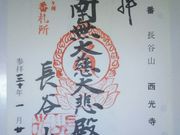 番 長谷山 西光寺
拝
南無大慈大悲殿
番札所
長谷山
参拝三十年一月廿